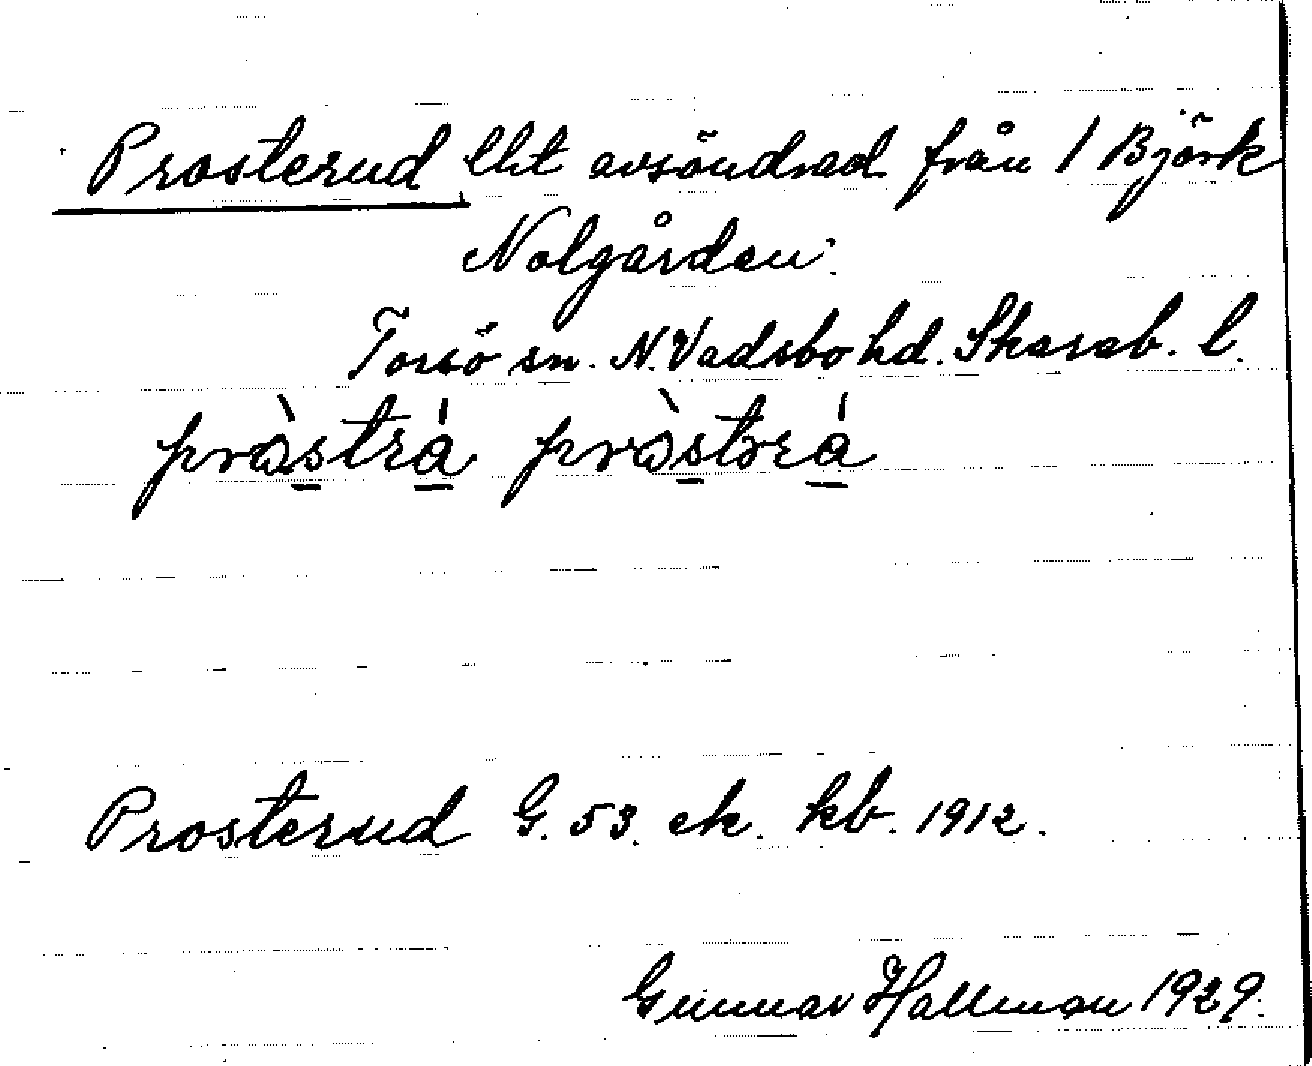 Prosterud lht avsöndrad från 1 Björk
Nolgården.
Torsö sn. N. Vadsbo hd. Skarab. l.
pràstrá pròstrá
Prosterud G. 53. ek. kb. 1912.
Gunnar Hallman 1929.